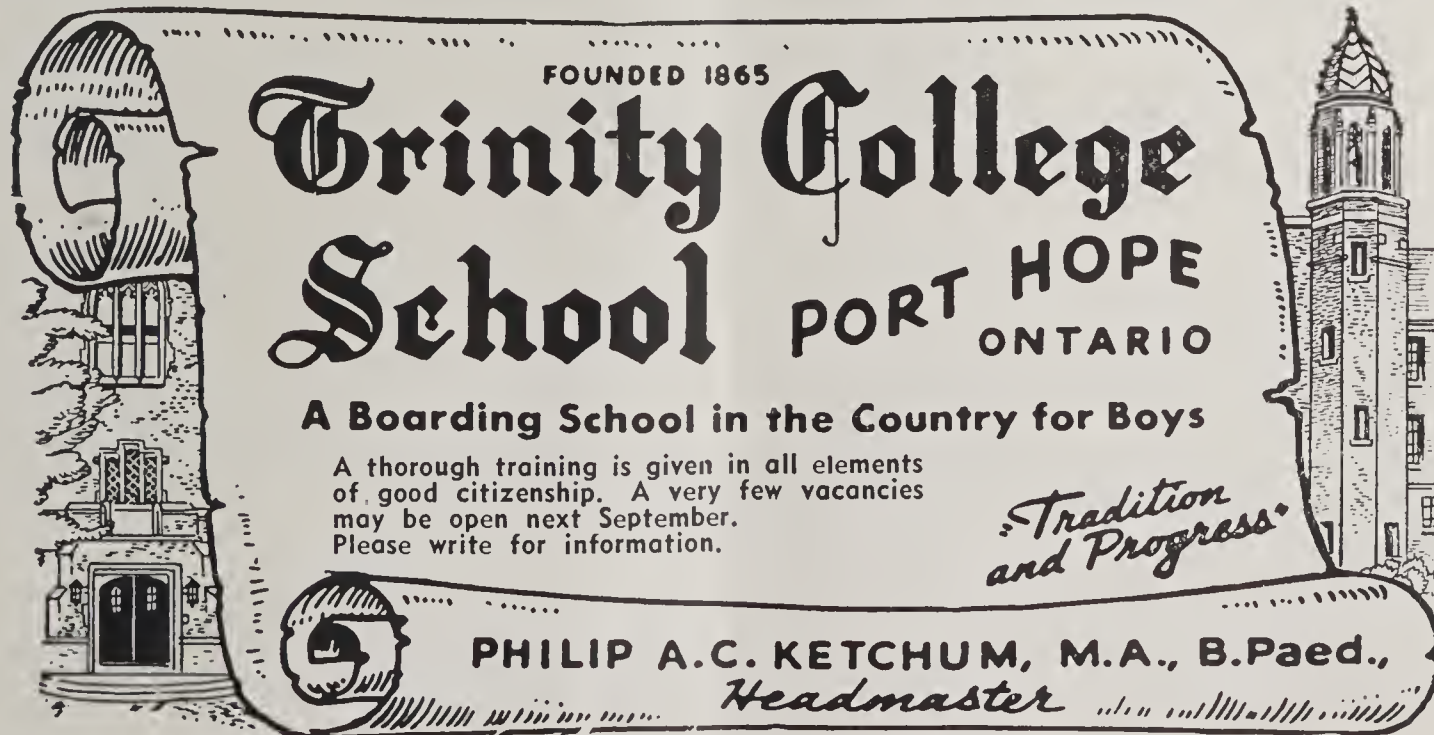 FOUNDED 1865
Trinity College
School
PORT HOPE
ONTARIO
A Boarding School in the Country for Boys
A thorough training is given in all elements
of good citizenship. A very few vacancies
may be open next September.
Please write for information.
"Tradition
and Progress"
PHILIP A.C. KETCHUM, M.A., B.Paed.,
Headmaster